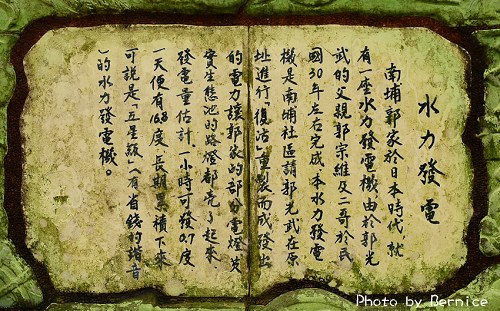 水力發電
南埔郭家於日本時代就
有一座水力發電機由於郭光
武的父親郭宗維及二哥於民
國30年左右完成，本水力發電
機是南埔社區請郭光武在原
址進行「復活」重製而成發出
的電力讓郭家的部分電燈及
實生態池的路燈都亮了起來
發電量估計，一小時可發0.7度
一天便有16.8度長期累積下來
可說是「五星級」（有省錢的諧音
）的水力發電機。
Photo by Bernice